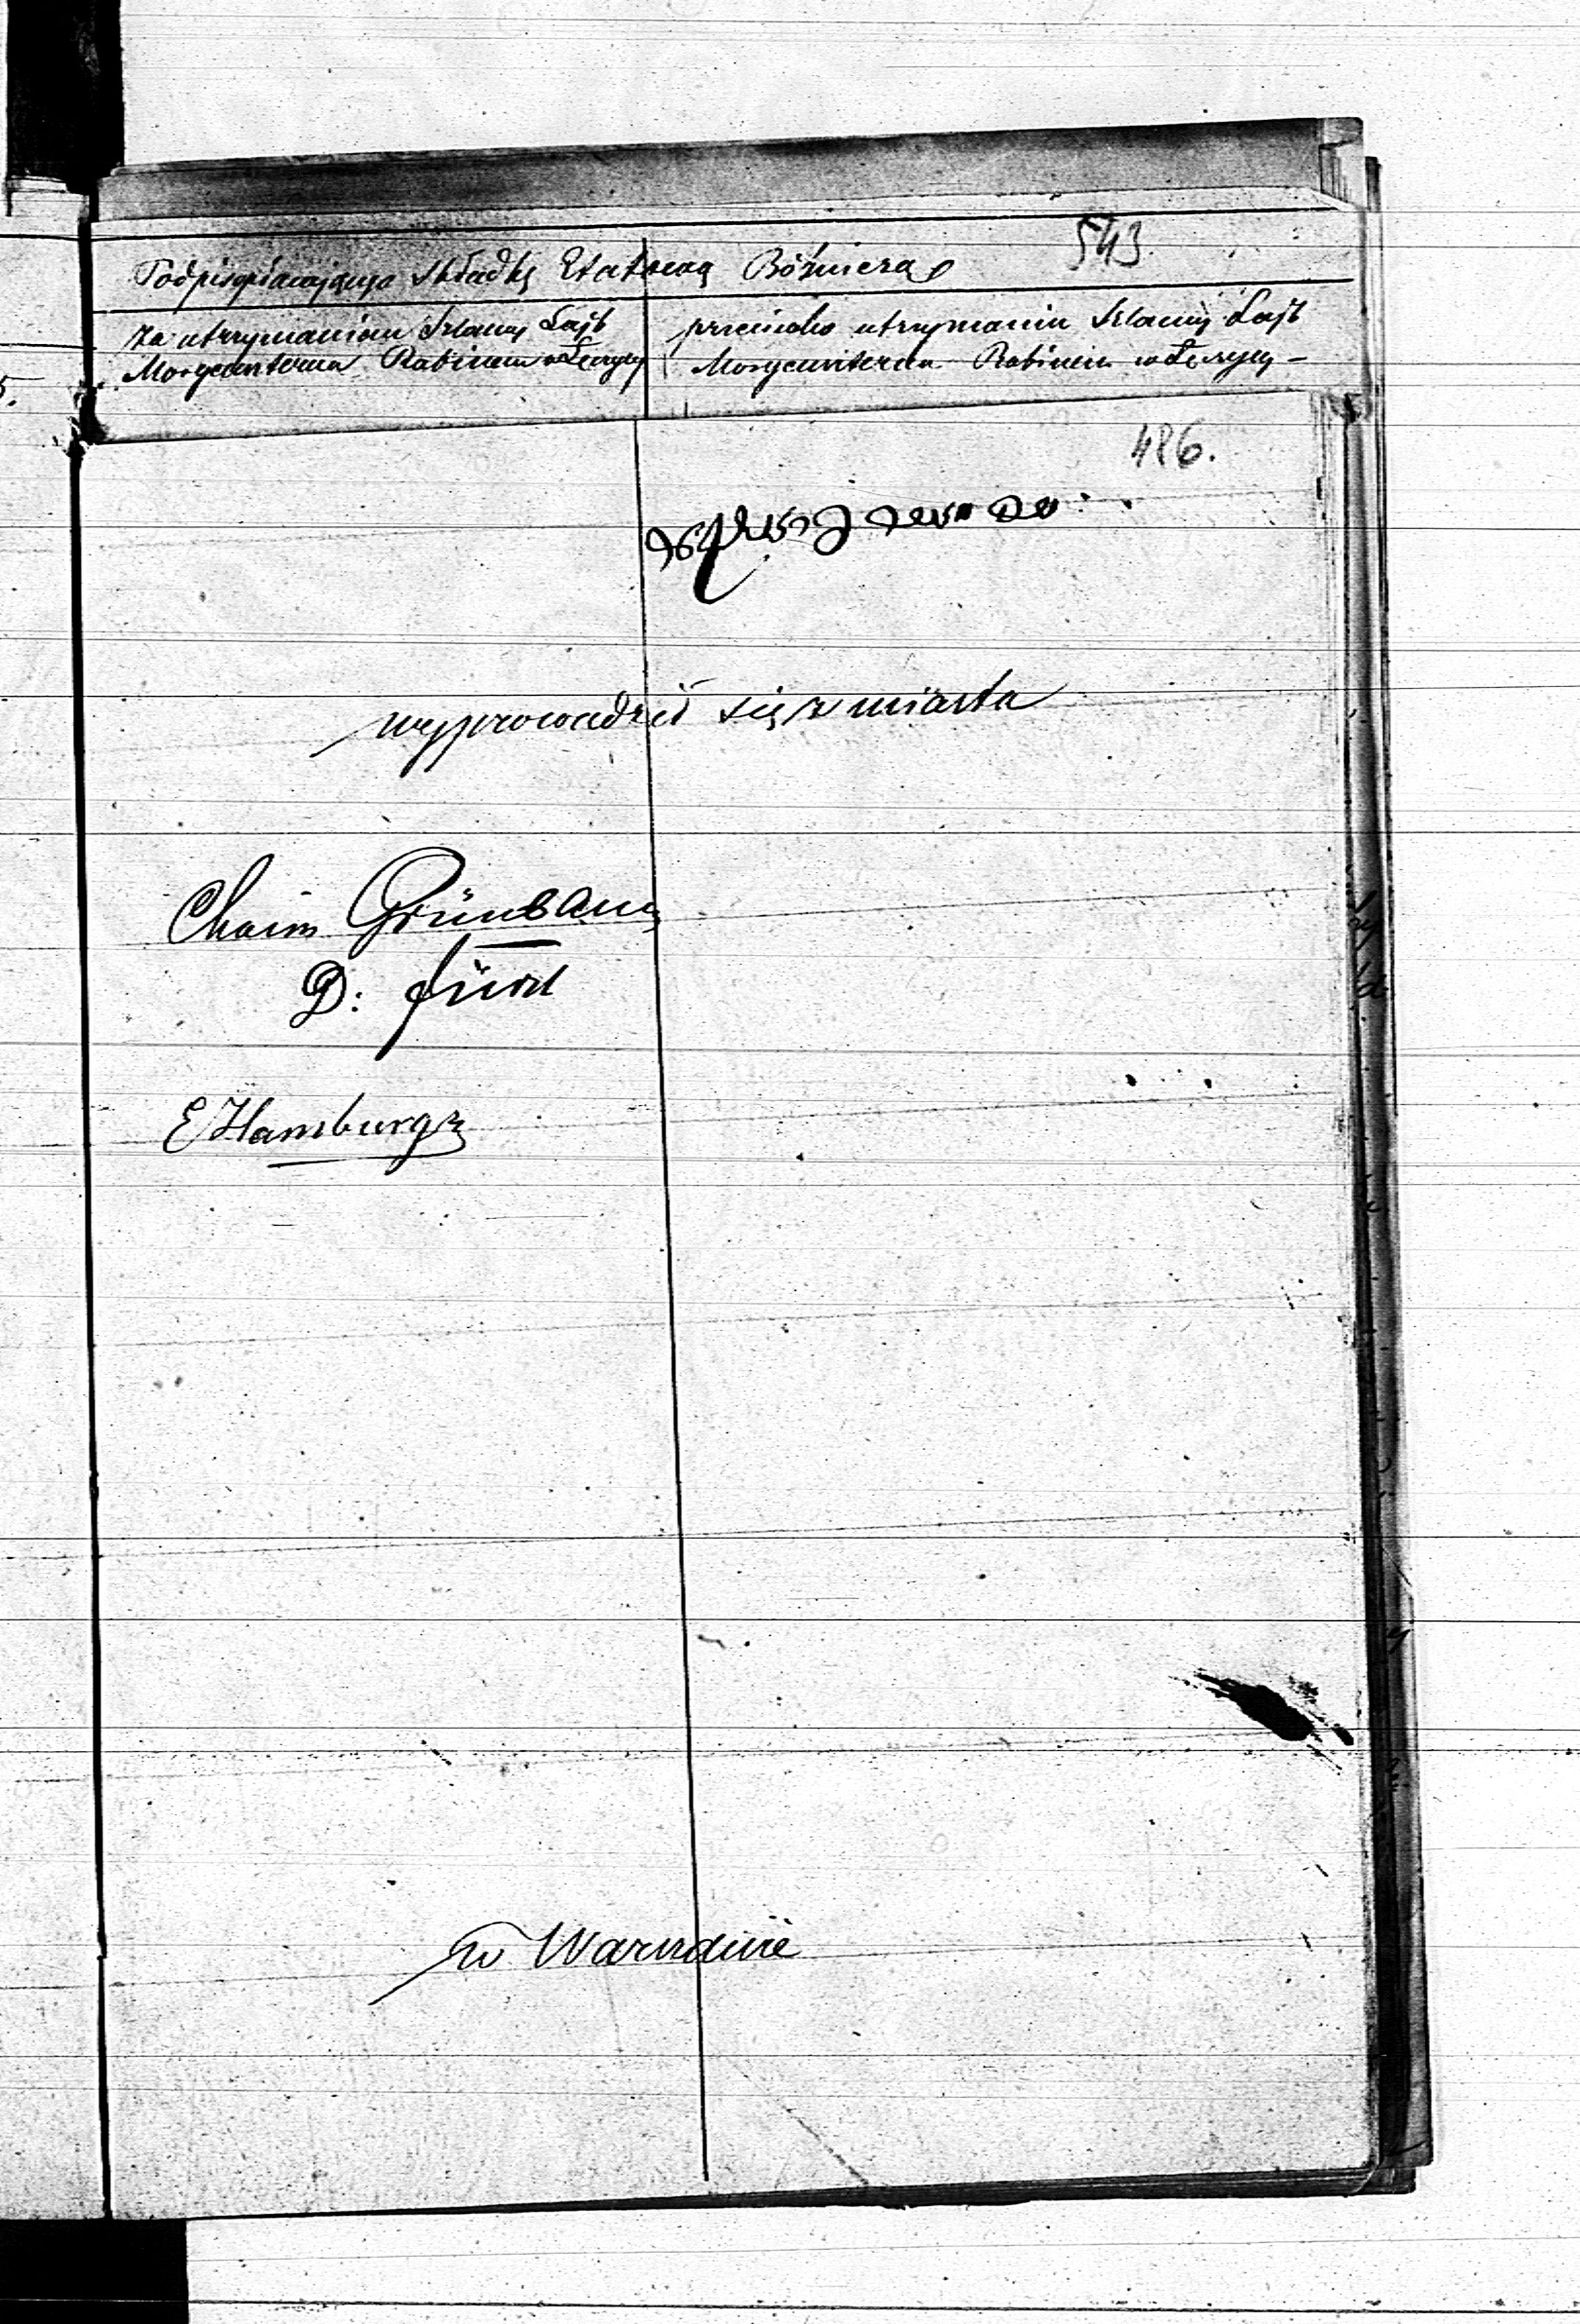 543
Podpis opłacającego składkę Etatową Bóżniczą
za utrzymaniem Szlamy Lajb
Morgensterna Rabinem w Łęczycy
przeciwko utrzymaniu Szlamy Lajb
Morgensterna Rabinem w Łęczycy –
486.
wyprowadził się z miasta
Chaim Grünbaum
D: Fürst
E Hamburger
w Warszawie